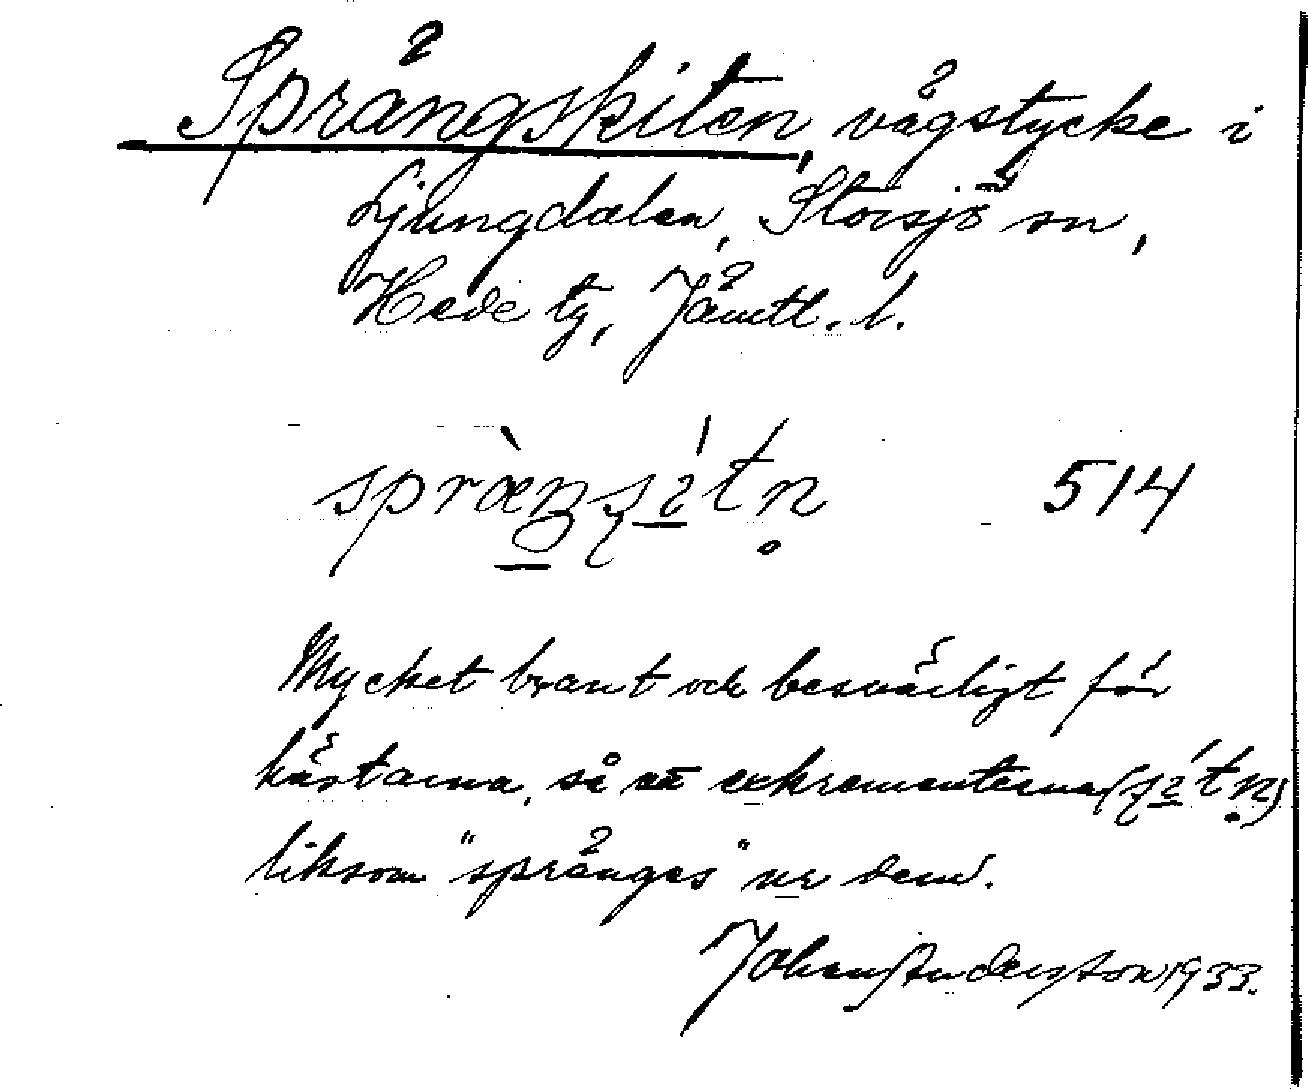 Sprängskiten, vägstycke i
Ljungdalen, Storsjö sn,
Hede tg, Jämtl. l.
514
Mycket brant och besvärligt för
hästarna, så att exkrementerna
liksom "spränges" ur dem.
Johan Anderson 1933.